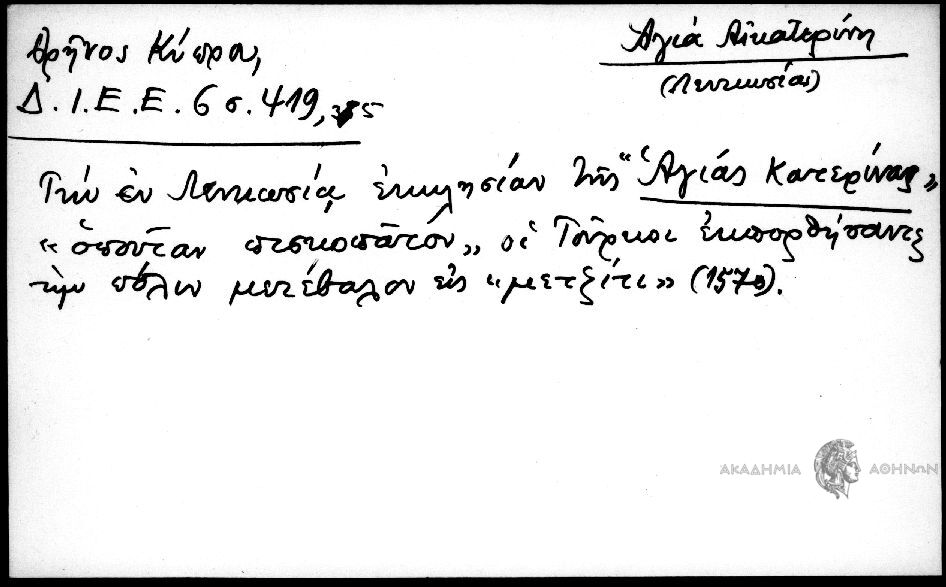 Θρῆνος Κύπρου,
Δ.Ι.Ε.Ε. 6 σ. 419,
Ἁγιά Αἰκατερίνη
(Λευκωσίας)
Τήν ἐν Λευκωσίᾳ ἐκκλησίαν τῆς "Ἁγιάς Κατερίνας"
«ὁποῦταν πισκοπᾶτον», οἱ Τοῦρκοι ἐκπορθήσαντες
τὴν πόλιν μετέβαλον εἰς «μετζίτι» (1570).
ΑΚΑΔΗΜΙΑ ΑΘΗΝΩΝ